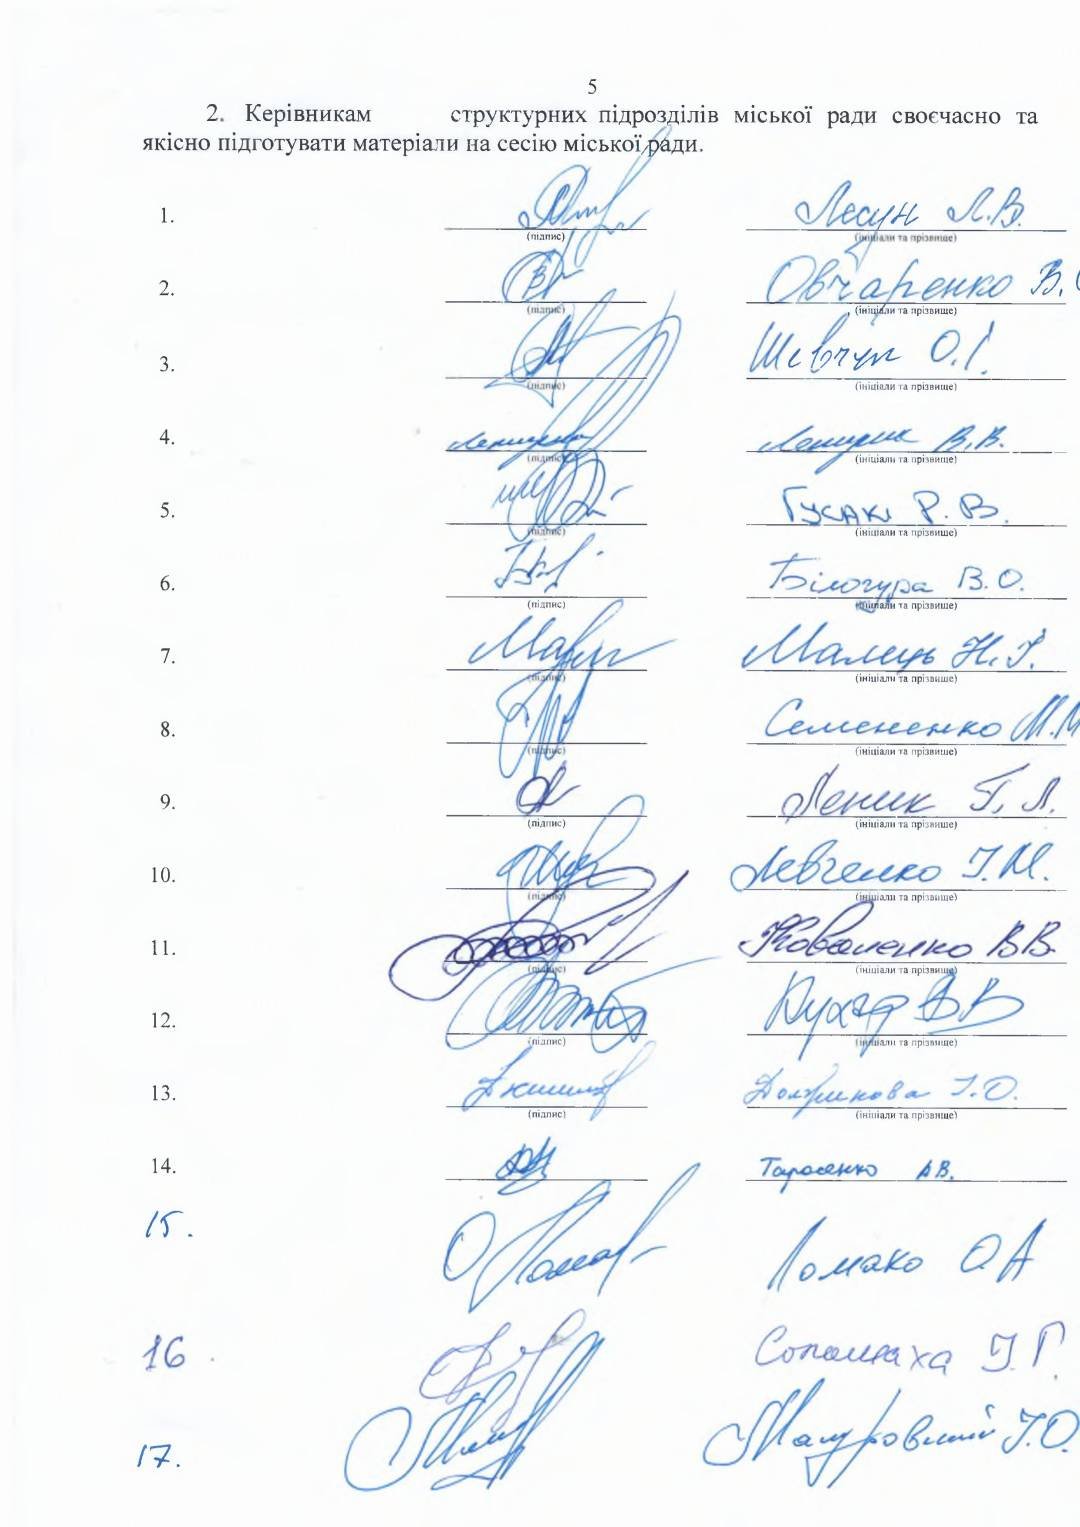 5
2. Керівникам структурних підрозділів міської ради своєчасно та
якісно підготувати матеріали на сесію міської ради.
1. Лесун Л.В.
(підпис) (ініціали та прізвище)
2. Овчаренко В.
(підпис) (ініціали та прізвище)
3. Шевчук О.І.
(підпис) (ініціали та прізвище)
4. В.В.
(підпис) (ініціали та прізвище)
5. Гусак Р.В.
(підпис) (ініціали та прізвище)
6. Білогура В.О.
(підпис) (ініціали та прізвище)
7. Малець Н.І.
(підпис) (ініціали та прізвище)
8. Семененко М.М
(підпис) (ініціали та прізвище)
9. Леник Г.Л.
(підпис) (ініціали та прізвище)
10. Левченко І.М.
(підпис) (ініціали та прізвище)
11. Коваленко В.В.
(підпис) (ініціали та прізвище)
12. В В
(підпис) (ініціали та прізвище)
13. І.О.
(підпис) (ініціали та прізвище)
14. Тарасенко А.В.
15. Ломако О А
16. І.Г.
17. І.О.